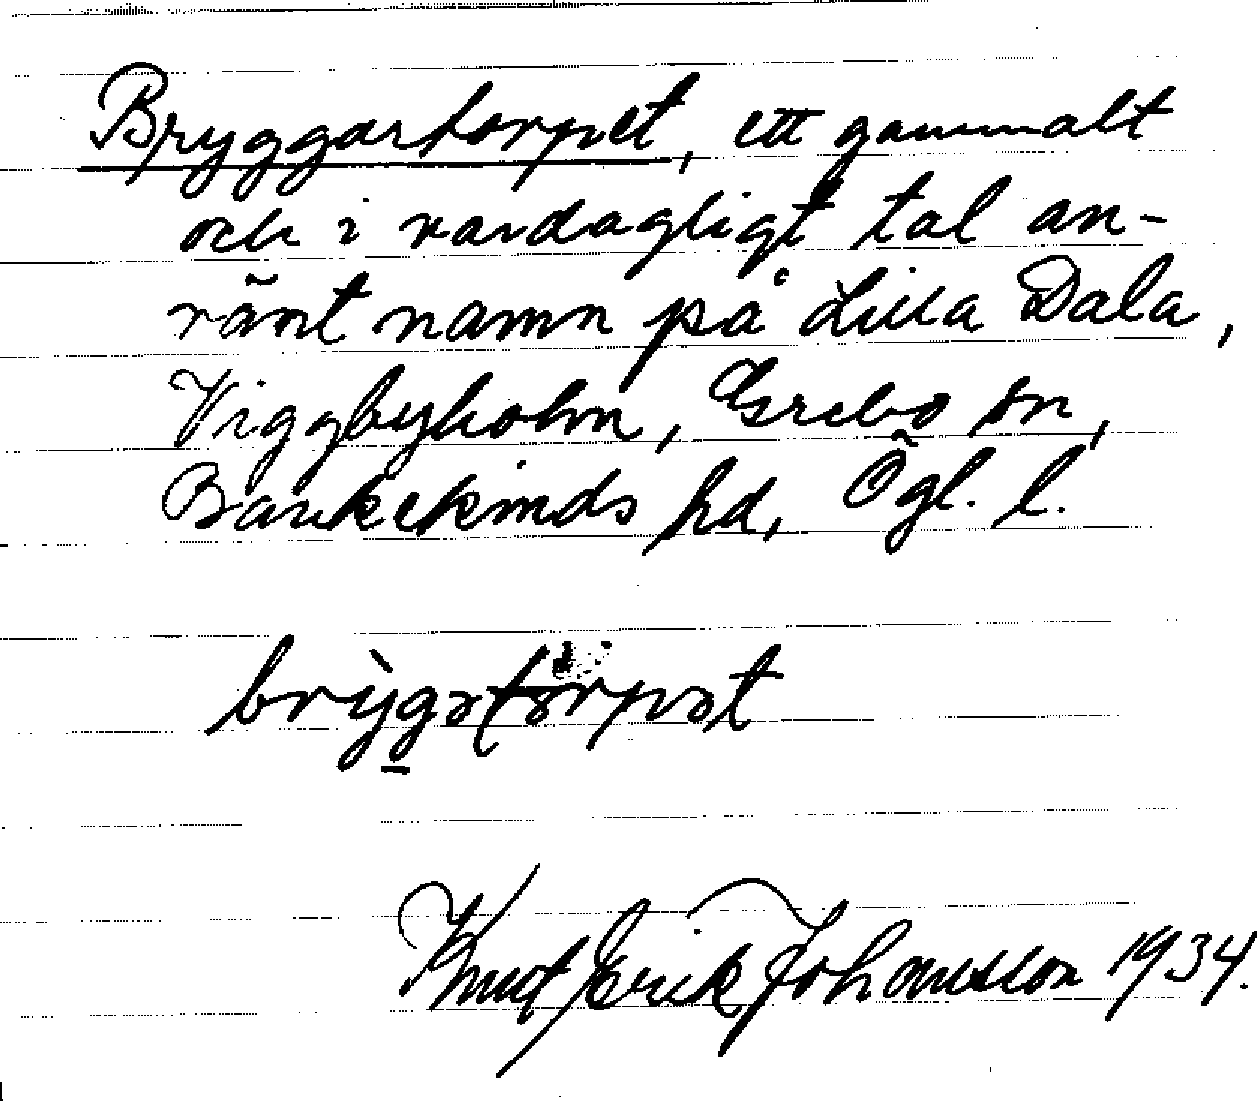 Bryggartorpet, ett gammalt
och i vardagligt tal an-
vänt namn på Lilla Dala,
Viggbyholm, Grebo sn,
Bankekinds hd, Ögl. l.
brỳgətörpət
Knut Erik Johansson 1934.